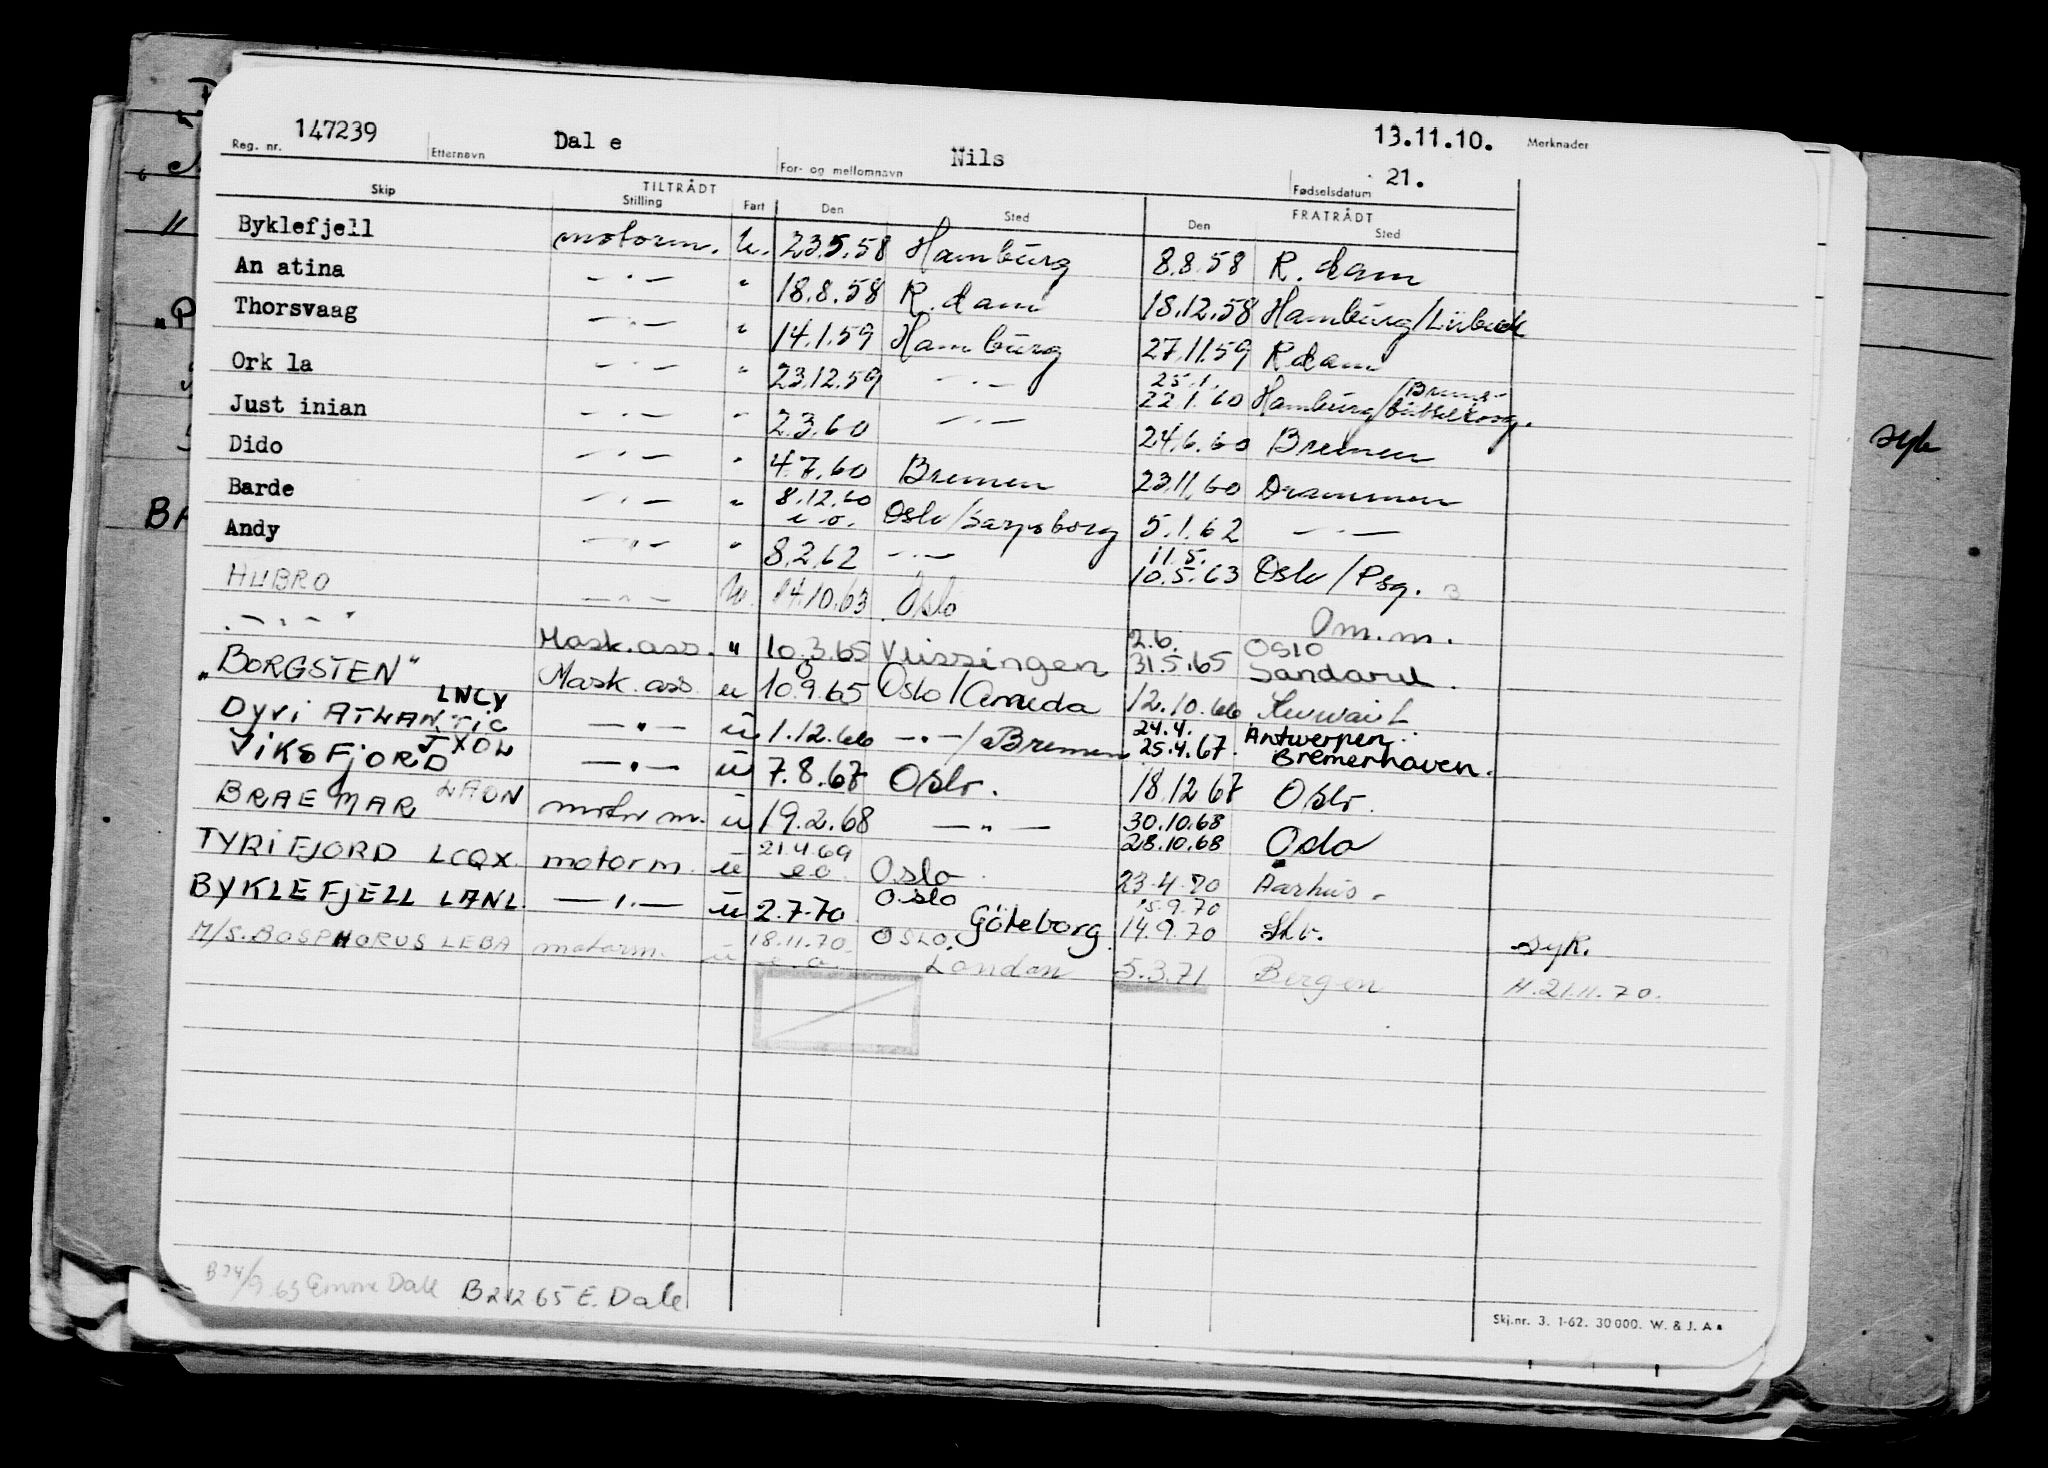 147239 Dal e Nils 13.11.10. Merknader
Reg. nr. Etternavn For- og mellomnavn Fødselsdatum 21.
TILTRÅDT FRATRÅDT
Skip Stilling Fart Den Sted Den Sted
Byklefjell motorm. u. 23.5.58 Hamburg 8.8.58 R.dam
An atina —·— " 18.8.58 R.dam 18.12.58 Hamburg/Lübeck
Thorsvaag —·— " 14.1.59 Hamburg 27.11.59 Rdam
Ork la —·— " 23.12.59 —·— 25.1. 22.1.60 Hamburg/
Just inian —·— " 2.3.60 —·— 24.6.60 Bremen
Dido —·— " 4.7.60 Bremen 23.11.60 Drammen
Barde —·— " 8.12.60 e.o. Oslo/Sarpsborg 5.1.62 —·—
Andy —"— " 8.2.62 —·— 11.5. 10.5.63 Oslo/Psg.
HUBRO —"— u. 14.10.63 Oslo Om.m.
—"— Mask.ass. " 10.3.65 Vlissingen 2.6. 31.5.65 Oslo
"BORGSTEN" Mask.ass u 10.9.65 Oslo/ 12.10.66 Kuwait
LNCY
Dyvi ATLANTIC —"— u 1.12.66 —"—/Bremen 24.4. 25.4.67 Antwerpen. Bremerhaven.
JXOW
VIKSFJORD —"— u 7.8.67 Oslo. 18.12.67 Oslo.
BRAEMAR LAON motor m. u 19.2.68 —"— 30.10.68 28.10.68 Oslo
TYRIFJORD LCQX motorm. u 21.4.69 e.o. Oslo 23.4.70 Aarhus
BYKLEFJELL LANL —"— u 2.7.70 Oslo Göteborg 15.9.70 14.9.70 Skv. syk.
M/S.BOSPHORUS LEBA motorm. u 18.11.70. e.o. OSLO. London 5.3.71 Bergen H.21.11.70.
B 24/9.63 Emma Dale B21265 E. Dale
Skj.nr. 3. 1-62. 30 000. W. & J. A s
syk
BA